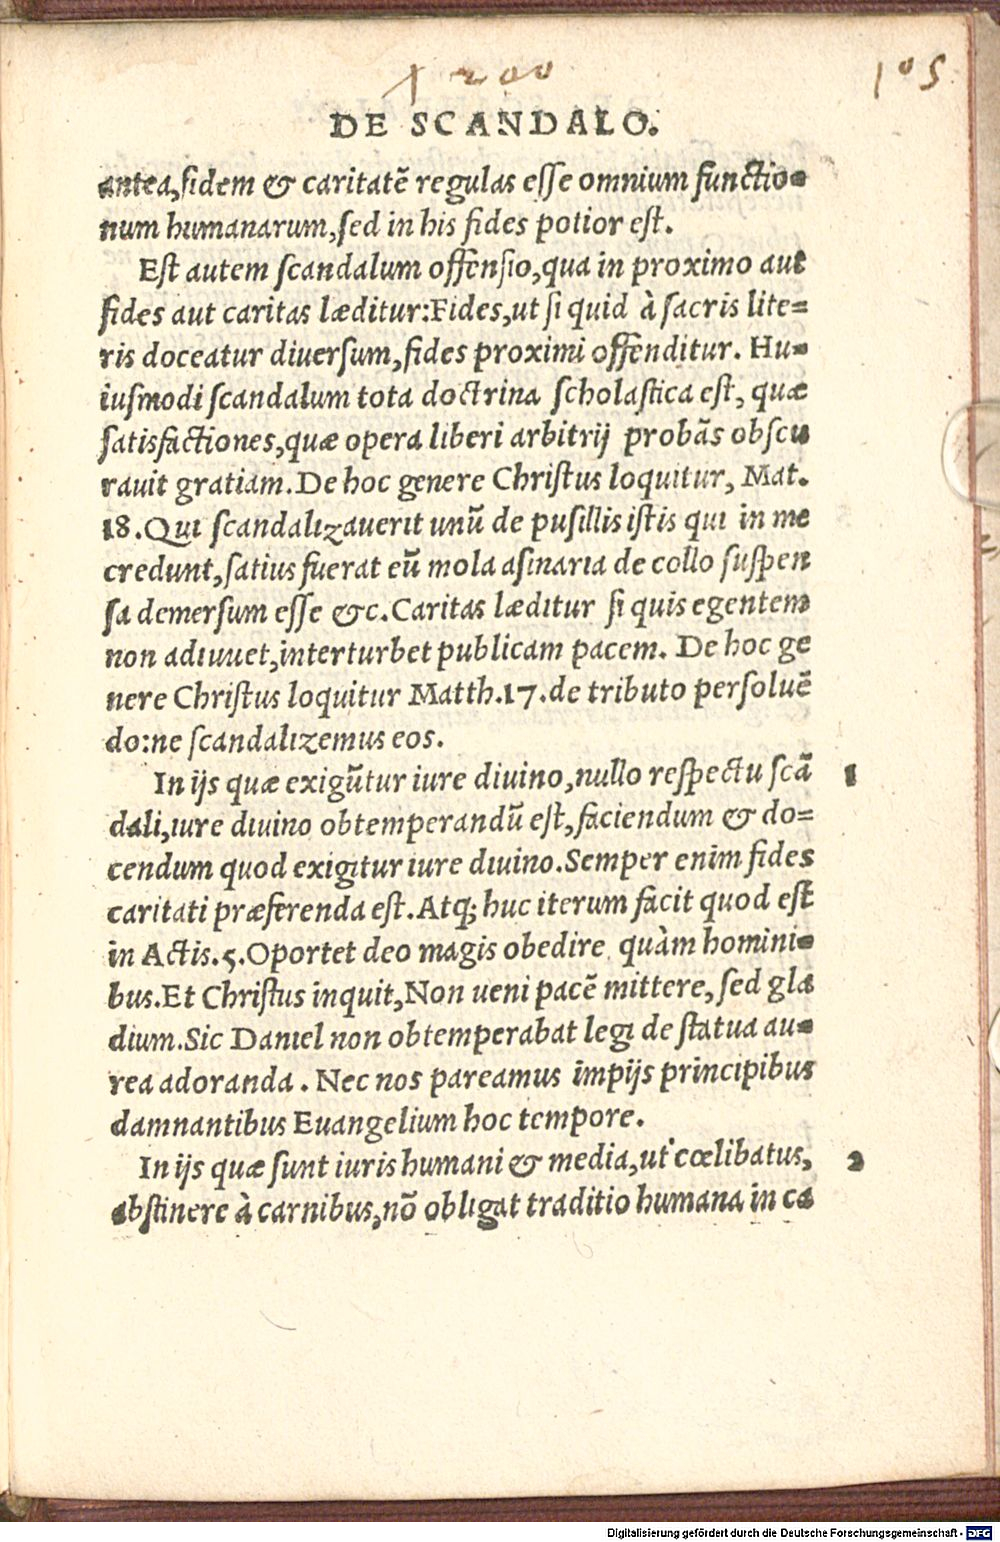 1200
105
DE SCANDALO.
antea, fidem & caritatē regulas esse omnium functio-
num humanarum, sed in his fides potior est.
Est autem scandalum offensio, qua in proximo aut
fides aut caritas læditur: Fides, ut si quid à sacris lite=
ris doceatur diversum, fides proximi offenditur. Hu-
iusmodi scandalum tota doctrina scholastica est, quæ
satisfactiones, quæ opera liberi arbitrij probãs obscu
rauit gratiam. De hoc genere Christus loquitur, Mat.
18. Qui scandalizauerit unũ de pusillis istis qui in me
credunt, satius fuerat eũ mola asinaria de collo suspen
sa demersum esse &c. Caritas læditur si quis egentem
non adiuuet, interturbet publicam pacem. De hoc ge
nere Christus loquitur Matth. 17. de tributo persoluē
do: ne scandalizemus eos.
In ijs quæ exigũtur iure divino, nullo respectu scã 1
dali, iure diuino obtemperandũ est, faciendum & do=
cendum quod exigitur iure diuino. Semper enim fides
caritati præferenda est. Atq; huc iterum facit quod est
in Actis. 5. Oportet deo magis obedire quàm homini-
bus. Et Christus inquit, Non ueni pacē mittere, sed gla
dium. Sic Daniel non obtemperabat legi de statua au-
rea adoranda. Nec nos pareamus impijs principibus
damnantibus Euangelium hoc tempore.
In ijs quæ sunt iuris humani & media, ut cœlibatus, 2
abstinere à carnibus, nõ obligat traditio humana in ca
Digitalisierung gefördert durch die Deutsche Forschungsgemeinschaft - DFG